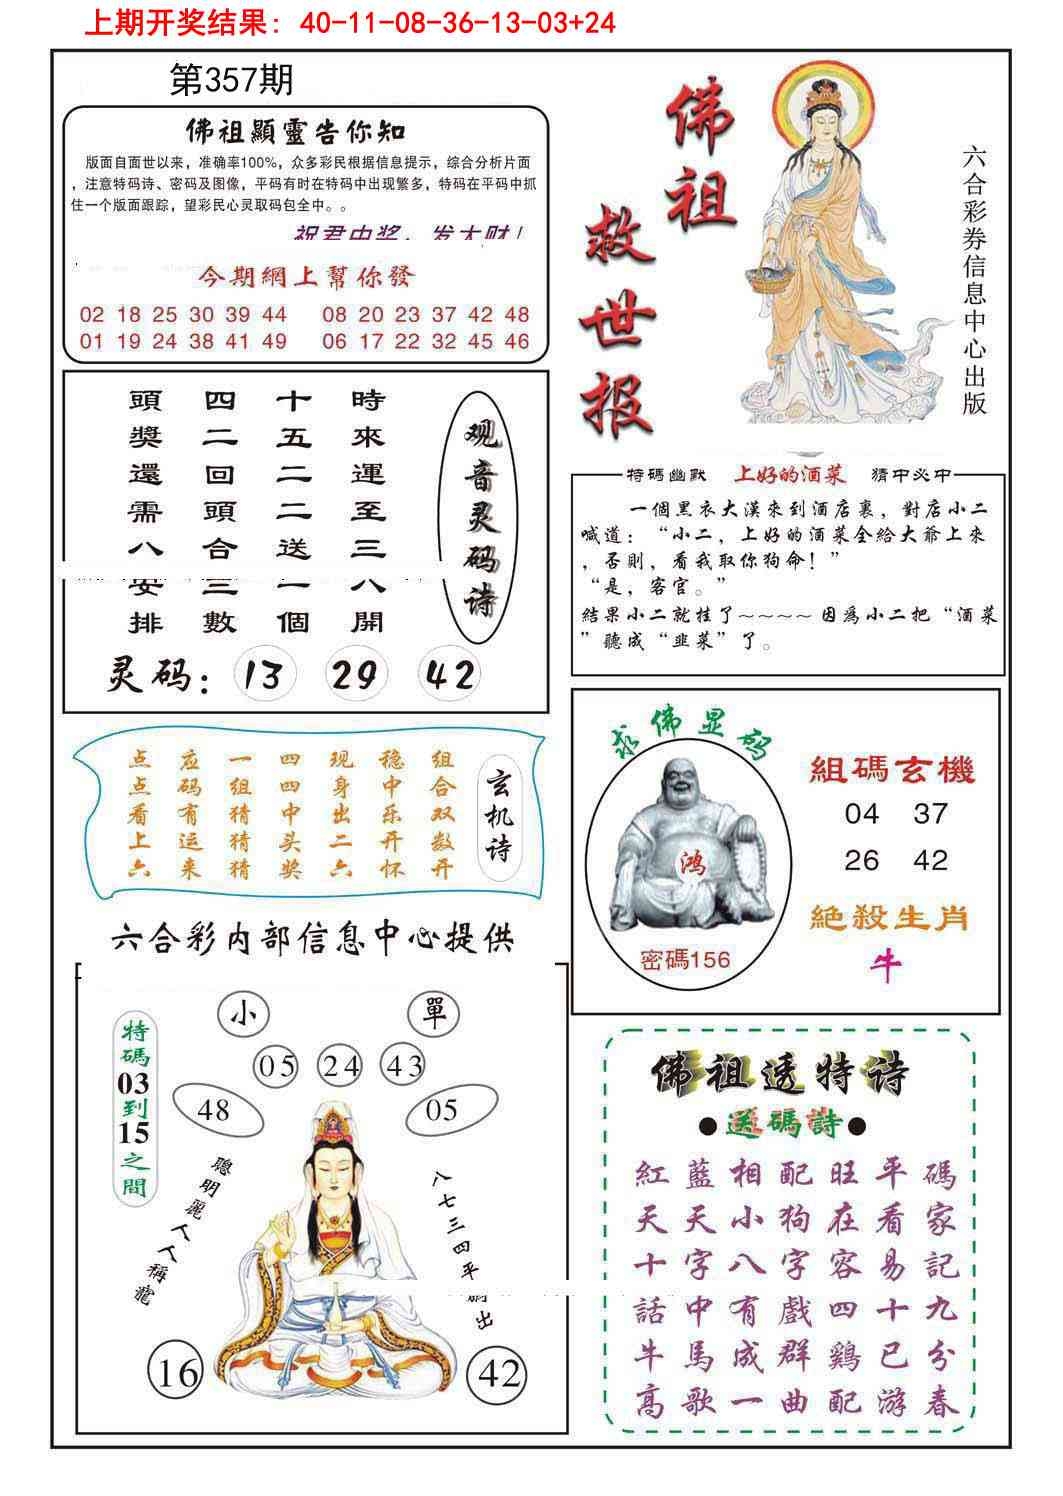 上期开奖结果: 40-11-08-36-13-03+24
第357期
佛祖顯靈告你知
版面自面世以来，准确率100%，众多彩民根据信息提示，综合分析片面
，注意特码诗、密码及图像，平码有时在特码中出现繁多，特码在平码中抓
住一个版面跟踪，望彩民心灵取码包全中。。
祝君中奖，发大财！
今期網上幫你發
02 18 25 30 39 44 08 20 23 37 42 48
01 19 24 38 41 49 06 17 22 32 45 46
佛祖
救世报
六合彩券信息中心出版
观音灵码诗
時來運至三八開
十五二二送一個
四二回頭合三數
頭獎還需八安排
灵码： 13 29 42
特碼幽默 上好的酒菜 猜中必中
一個黑衣大漢來到酒店裏，對店小二
喊道：“小二，上好的酒菜全給大爺上來
，否則，看我取你狗命！”
“是，客官。”
結果小二就挂了~~~~因爲小二把“酒菜
”聽成“韭菜”了。
玄机诗
组合双数开
稳中乐开怀
现身出二六
四四中头奖
一组猜猜猜
应码有运来
点点看上六
求佛显码
鸿
密碼156
組碼玄機
04 37
26 42
絕殺生肖
牛
六合彩内部信息中心提供
小 單
05 24 43
48 05
特碼03到15之間
聰明麗人人稱寵
八七三四平碼出
16 42
佛祖透特诗
●送碼詩●
紅藍相配旺平碼
天天小狗在看家
十字八字容易記
話中有戲四十九
牛馬成群鷄已分
高歌一曲配游春